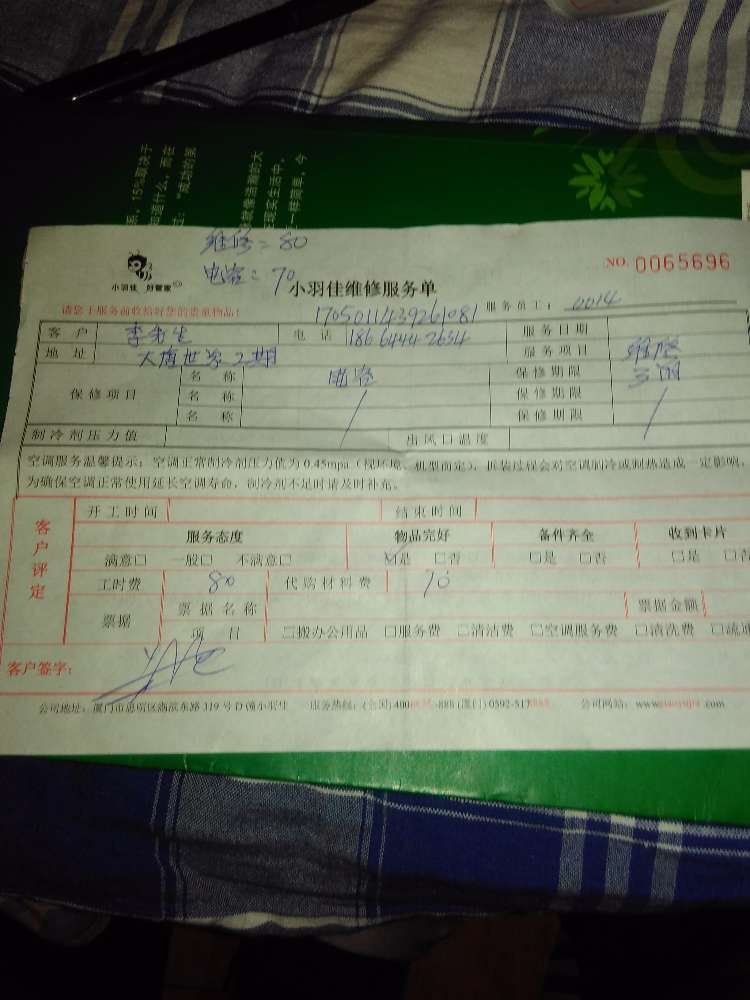 维修=80
电容=70
NO. 0065696
小羽佳 好管家
小羽佳维修服务单
请您于服务前收拾好您的贵重物品!
服务员工: 0014
客户 李先生 电话 服务日期
地址 大唐世家2期 服务项目 维修
保修项目 名称 电容 保修期限
名称 保修期限
名称 保修期限
制冷剂压力值 出风口温度
空调服务温馨提示:空调正常制冷剂压力值为0.45mpa(视环境、机型而定),拆装过程会对空调制冷或制热造成一定影响,
为确保空调正常使用延长空调寿命,制冷剂不足时请及时补充。
客户评定
开工时间 结束时间
服务态度 物品完好 备件齐全 收到卡片
满意□ 一般□ 不满意□ ☑是 □否 □是 □否 □是 □否
工时费 80 代购材料费 70
票据 票据名称 票据金额
项目 □搬办公用品 □服务费 □清洁费 □空调服务费 □清洗费 □疏通
客户签字:
公司地址:厦门市思明区湖滨东路319号 服务热线:(全国)400 -888 (厦门)0592-517 公司网站:www. .com